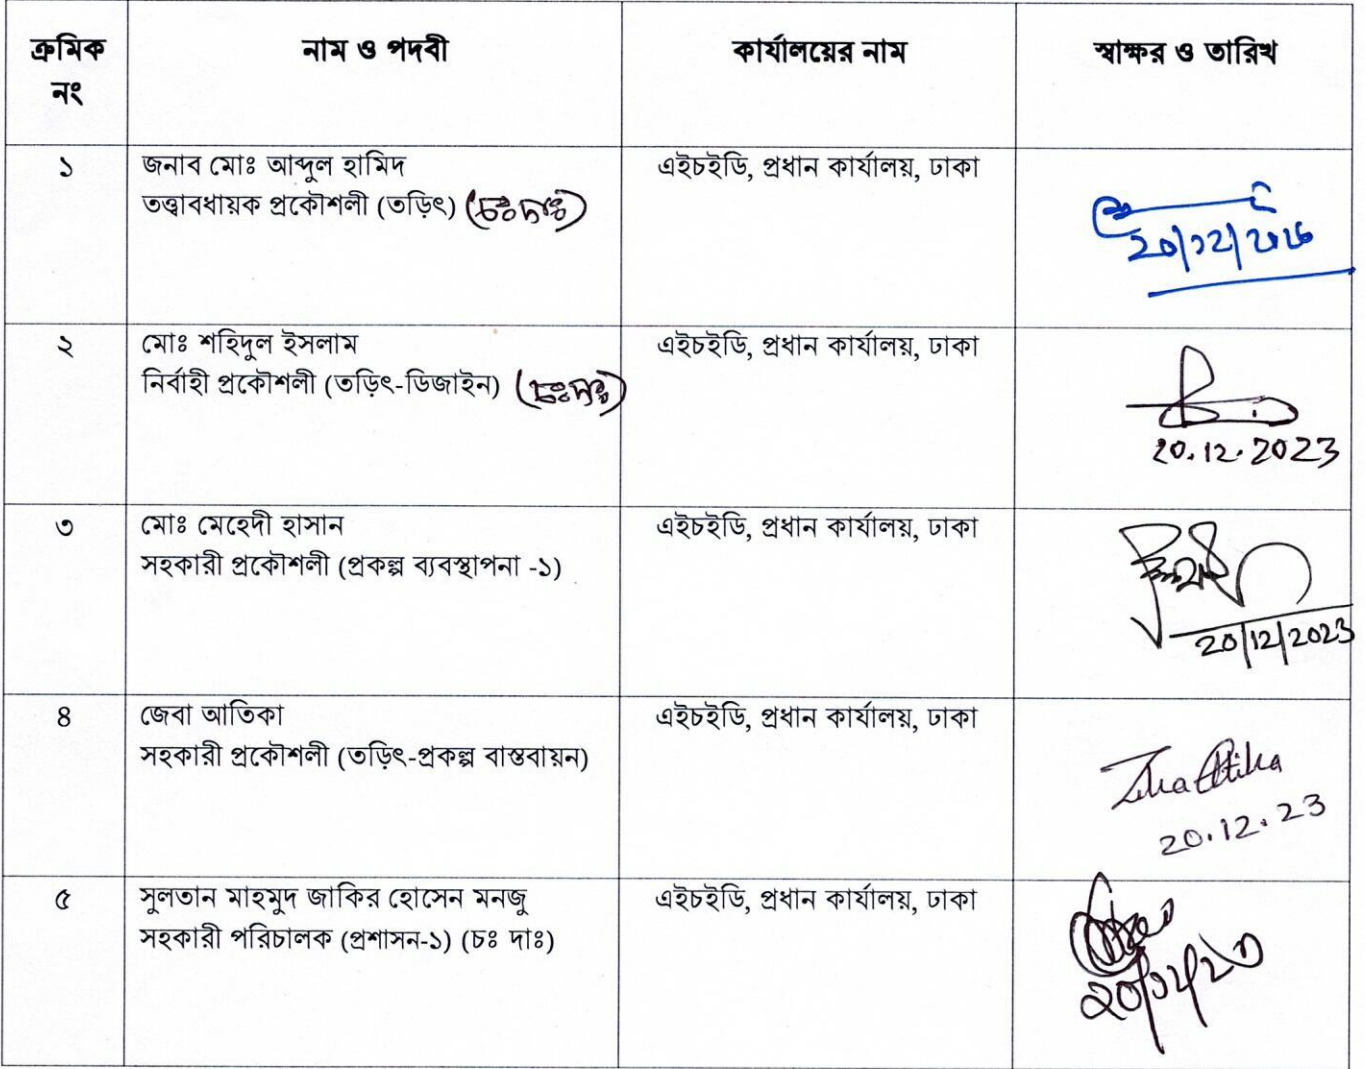 ক্রমিক
নং
নাম ও পদবী
কার্যালয়ের নাম
স্বাক্ষর ও তারিখ
১
জনাব মোঃ আব্দুল হামিদ
তত্ত্বাবধায়ক প্রকৌশলী (তড়িৎ) (চঃদাঃ)
এইচইডি, প্রধান কার্যালয়, ঢাকা
২
মোঃ শহিদুল ইসলাম
নির্বাহী প্রকৌশলী (তড়িৎ-ডিজাইন) (চঃদাঃ)
এইচইডি, প্রধান কার্যালয়, ঢাকা
20.12.2023
৩
মোঃ মেহেদী হাসান
সহকারী প্রকৌশলী (প্রকল্প ব্যবস্থাপনা -১)
এইচইডি, প্রধান কার্যালয়, ঢাকা
20/12/2023
৪
জেবা আতিকা
সহকারী প্রকৌশলী (তড়িৎ-প্রকল্প বাস্তবায়ন)
এইচইডি, প্রধান কার্যালয়, ঢাকা
20.12.23
৫
সুলতান মাহমুদ জাকির হোসেন মনজু
সহকারী পরিচালক (প্রশাসন-১) (চঃ দাঃ)
এইচইডি, প্রধান কার্যালয়, ঢাকা
২০/১২/২৩